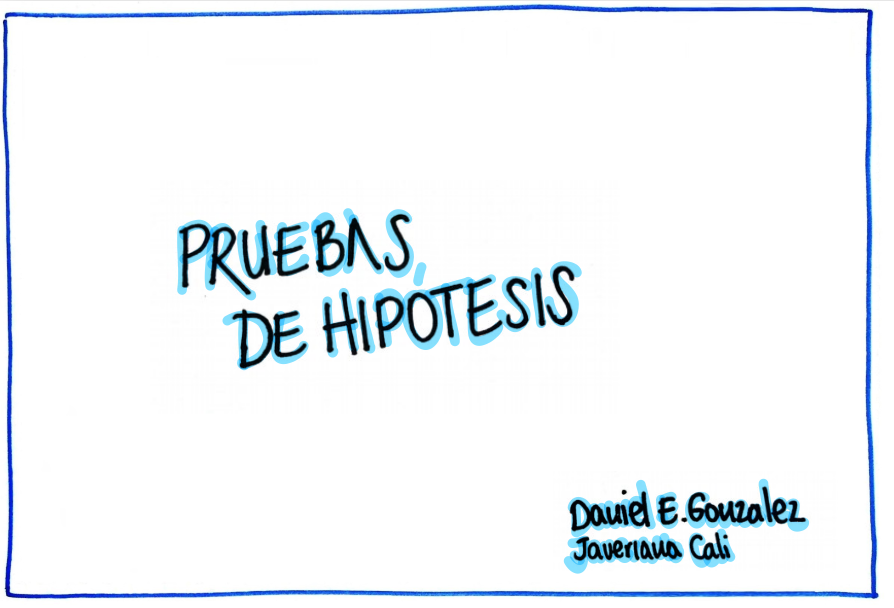 PRUEBAS
DE HIPÓTESIS
Daniel E. Gonzalez
Javeriana Cali